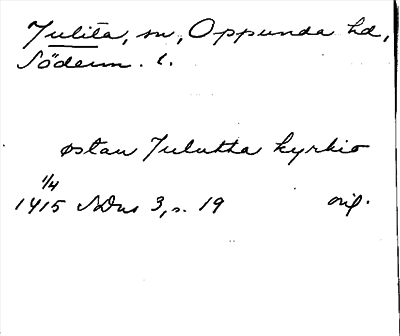 Julita, sn, Oppunda hd,
Söderm. l.
østan Julutha kyrkio
1/4
1415 SDns 3, s. 19 orig.